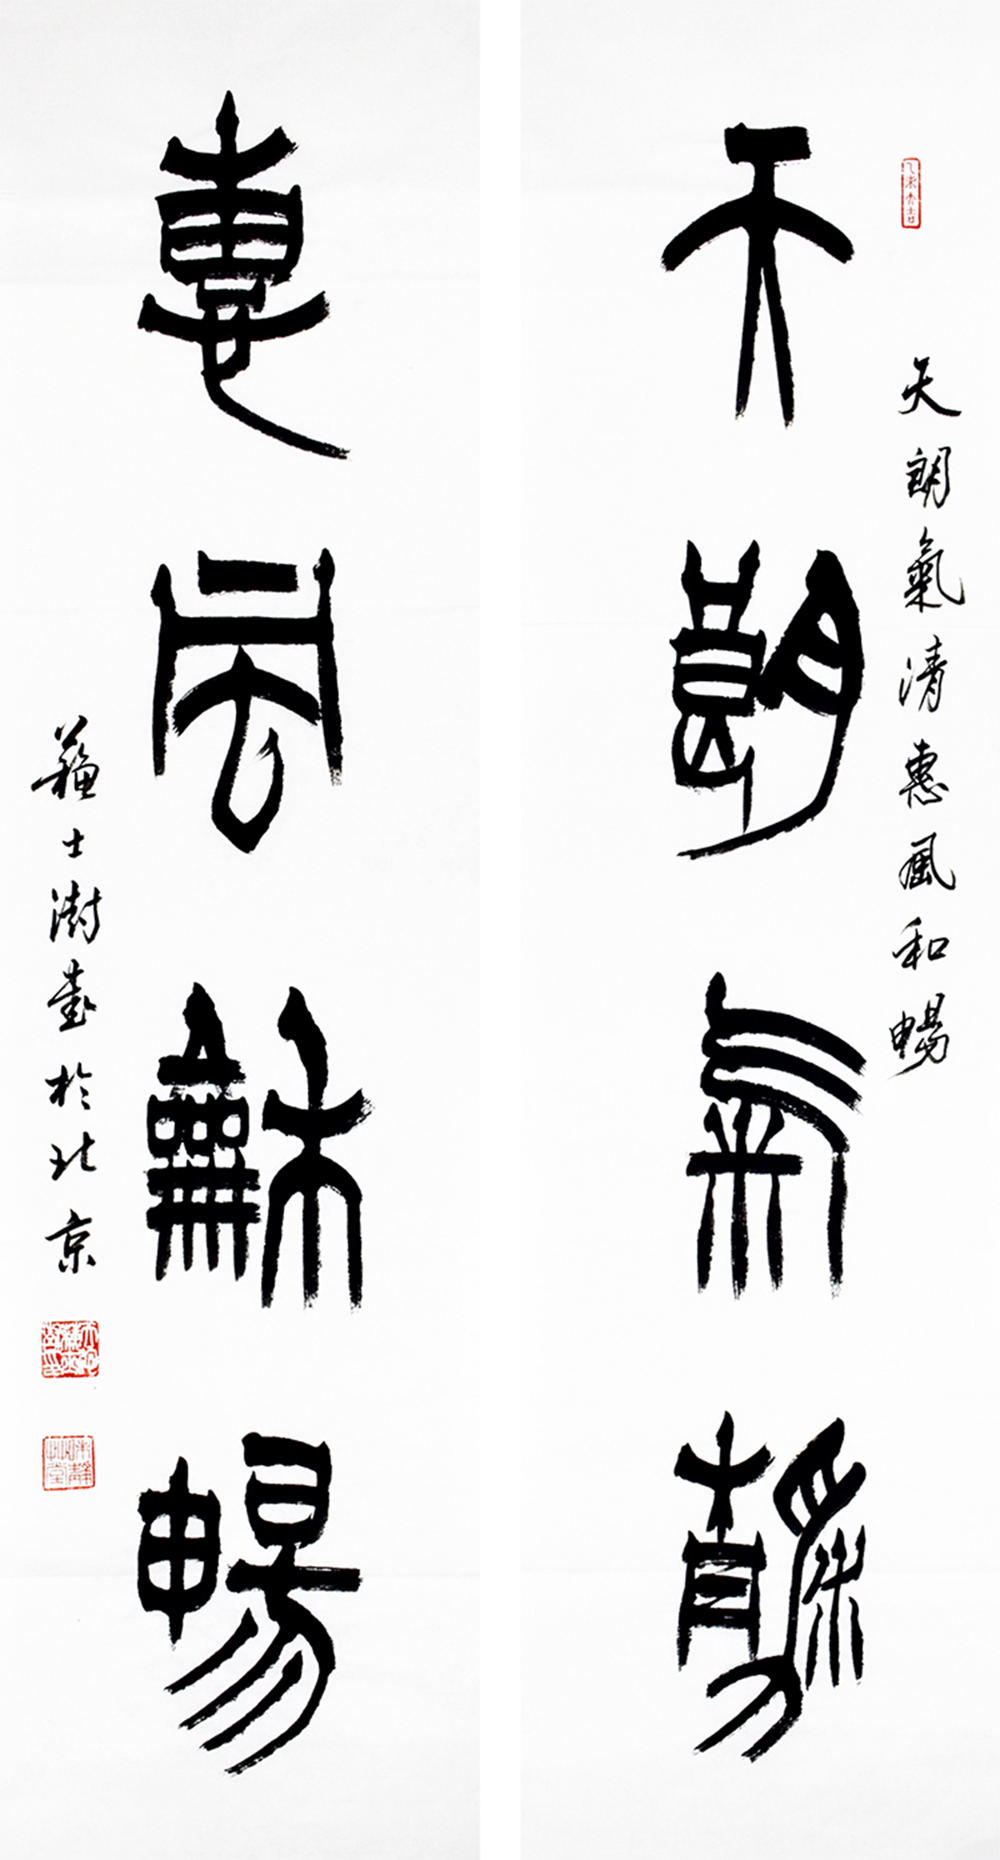 天朗氣清惠風和暢
天朗氣清
惠風龢暢
蘇士澍書於北京